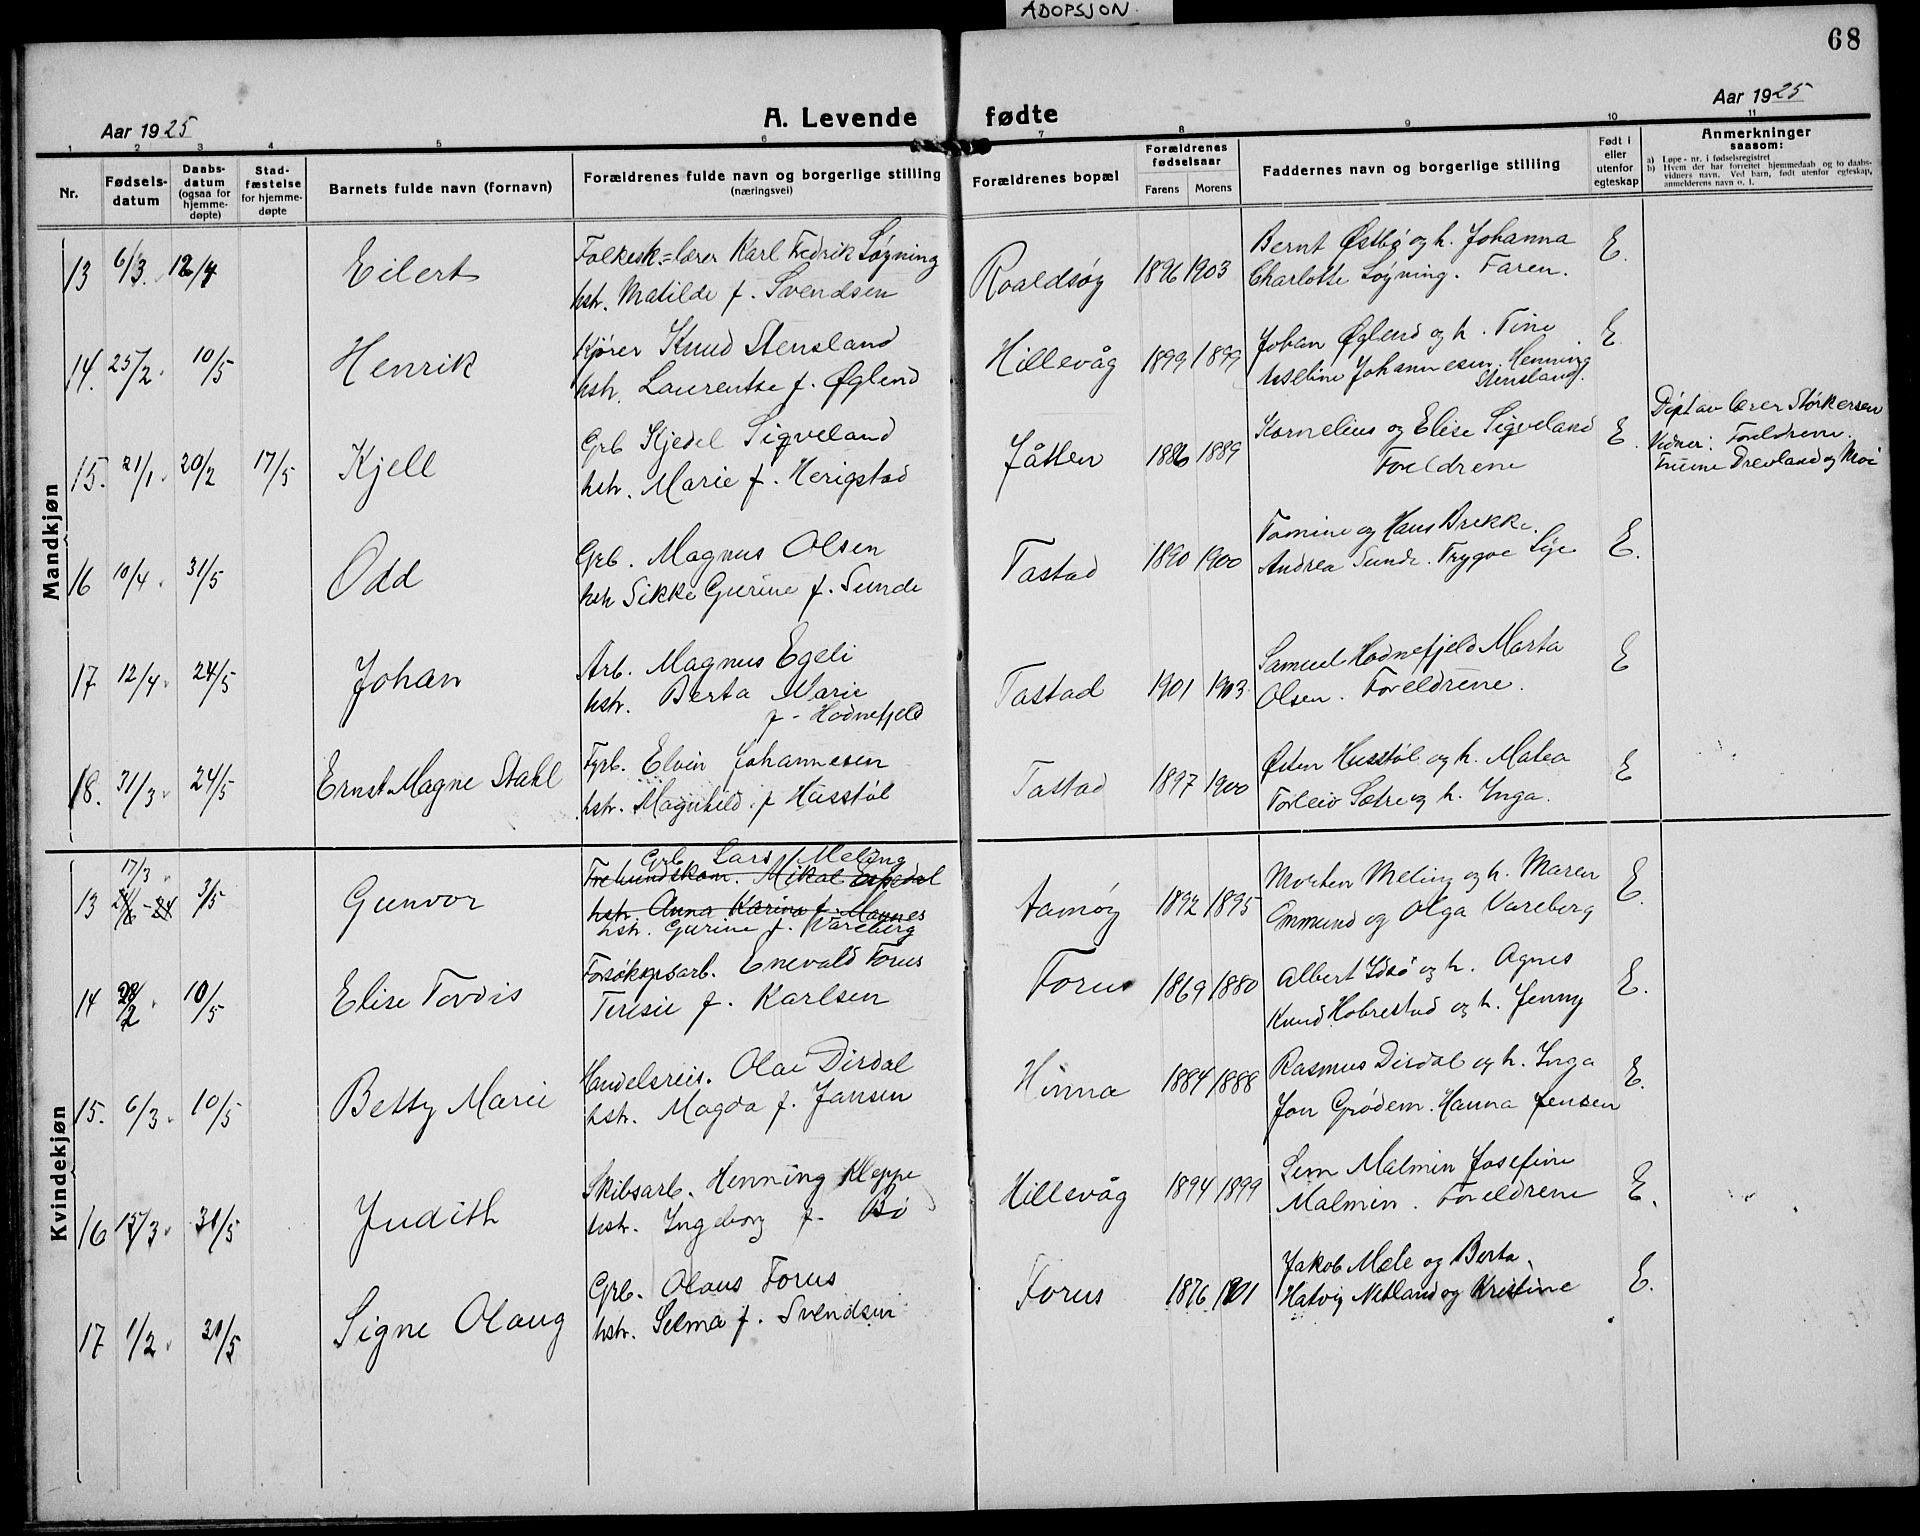 ADOPSJON.
68
Aar 1925
A. Levende fødte
Aar 1925
1 2 3 4 5 6 7 8 9 10 11
Nr.
Fødsels-
datum
Daabs-
datum
(ogsaa for
hjemme-
døpte)
Stad-
fæstelse
for hjemme-
døpte
Barnets fulde navn (fornavn)
Forældrenes fulde navn og borgerlige stilling
(næringsvei)
Forældrenes bopæl
Forældrenes
fødselsaar
Farens Morens
Faddernes navn og borgerlige stilling
Født i
eller
utenfor
egteskap
Anmerkninger
saasom:
a) Løpe-nr. i fødselsregistret
b) Hvem der har forrettet hjemmedaab og to daabs-
vidners navn. Ved barn, født utenfor egteskap,
anmelderens navn o. l.
Mandkjøn
13 6/3. 12/4 Eilert
Folkesk.=lærer Karl Fredrik Søyning
hstr. Matilde f. Svendsen
Roaldsøy 1896 1903
Bernt Østbø og h. Johanna
Charlotte Søyning. Faren.
E.
14. 25/2. 10/5 Henrik
Kjører Knud Stensland
hstr. Laurentse f. Øglend
Hillevåg 1899 1899
Johan Øglend og h. Tine
Aseline Johannesen. Henning
Stensland.
E.
15. 21/1. 20/2 17/5 Kjell
Grb Kjedel Sigveland
hstr. Marie f. Herigstad
Jåtten 1886 1889
Kornelius og Elise Sigveland
Foreldrene
E.
Døpt av lærer Størkersen
Vidner: Foreldrene.
Fruene Drevland og Moi
16 10/4. 31/5 Odd
Grb. Magnus Olsen
hstr Sikke Gurine f. Sunde
Tastad 1890 1900
Tomine og Hans Brekke.
Andrea Sunde. Trygve Lye
E.
17 12/4. 24/5 Johan
Arb. Magnus Egeli
hstr. Berta Marie
f. Hodnefjeld
Tastad 1901 1903
Samuel Hodnefjeld Marta
Olsen. Foreldrene.
E
18. 31/3. 24/5 Ernst Magne Stahl
Fyrb. Elvin Johannesen
hstr. Magnhild f Husstøl
Tastad 1897 1900
Østen Husstøl og h. Matea
Torleiv Sætre og h. Inga.
E
Kvindekjøn
17/3
13 3/5 Gunvor
Grb. Lars Meling
Mikal Espedal
hstr. Anna Karina f. Mannes
hstr. Gurine f. Vareberg
Åmøy 1892 1895
Morten Meling og h. Maren
Ommund og Olga Vareberg
E.
14 28/2. 10/5 Elise Tordis
Forsøksgsarb. Enevald Forus
Teresie f. Karlsen
Forus 1869 1880
Albert Idsø og h. Agnes
Knud Hobrestad og h. Jenny
E.
15. 6/3. 10/5 Betty Marie
Handelsreis. Olai Dirdal
hstr. Magda f. Jansen
Hinna 1884 1888
Rasmus Dirdal og h. Inga
Jon Grødem. Hanna Jensen
E.
16 15/3. 31/5 Judith
Skibsarb. Henning Kleppe
hstr. Ingeborg f. Bø
Hillevåg 1894 1899
Sem Malmin Josefine
Malmin. Foreldrene
E.
17 1/2. 31/5 Signe Olaug
Grb. Olaus Forus
hstr. Selma f. Svendsen
Forus 1876 1901
Jakob Mæle og Berta,
Hatvig Netland og Kristine
E.